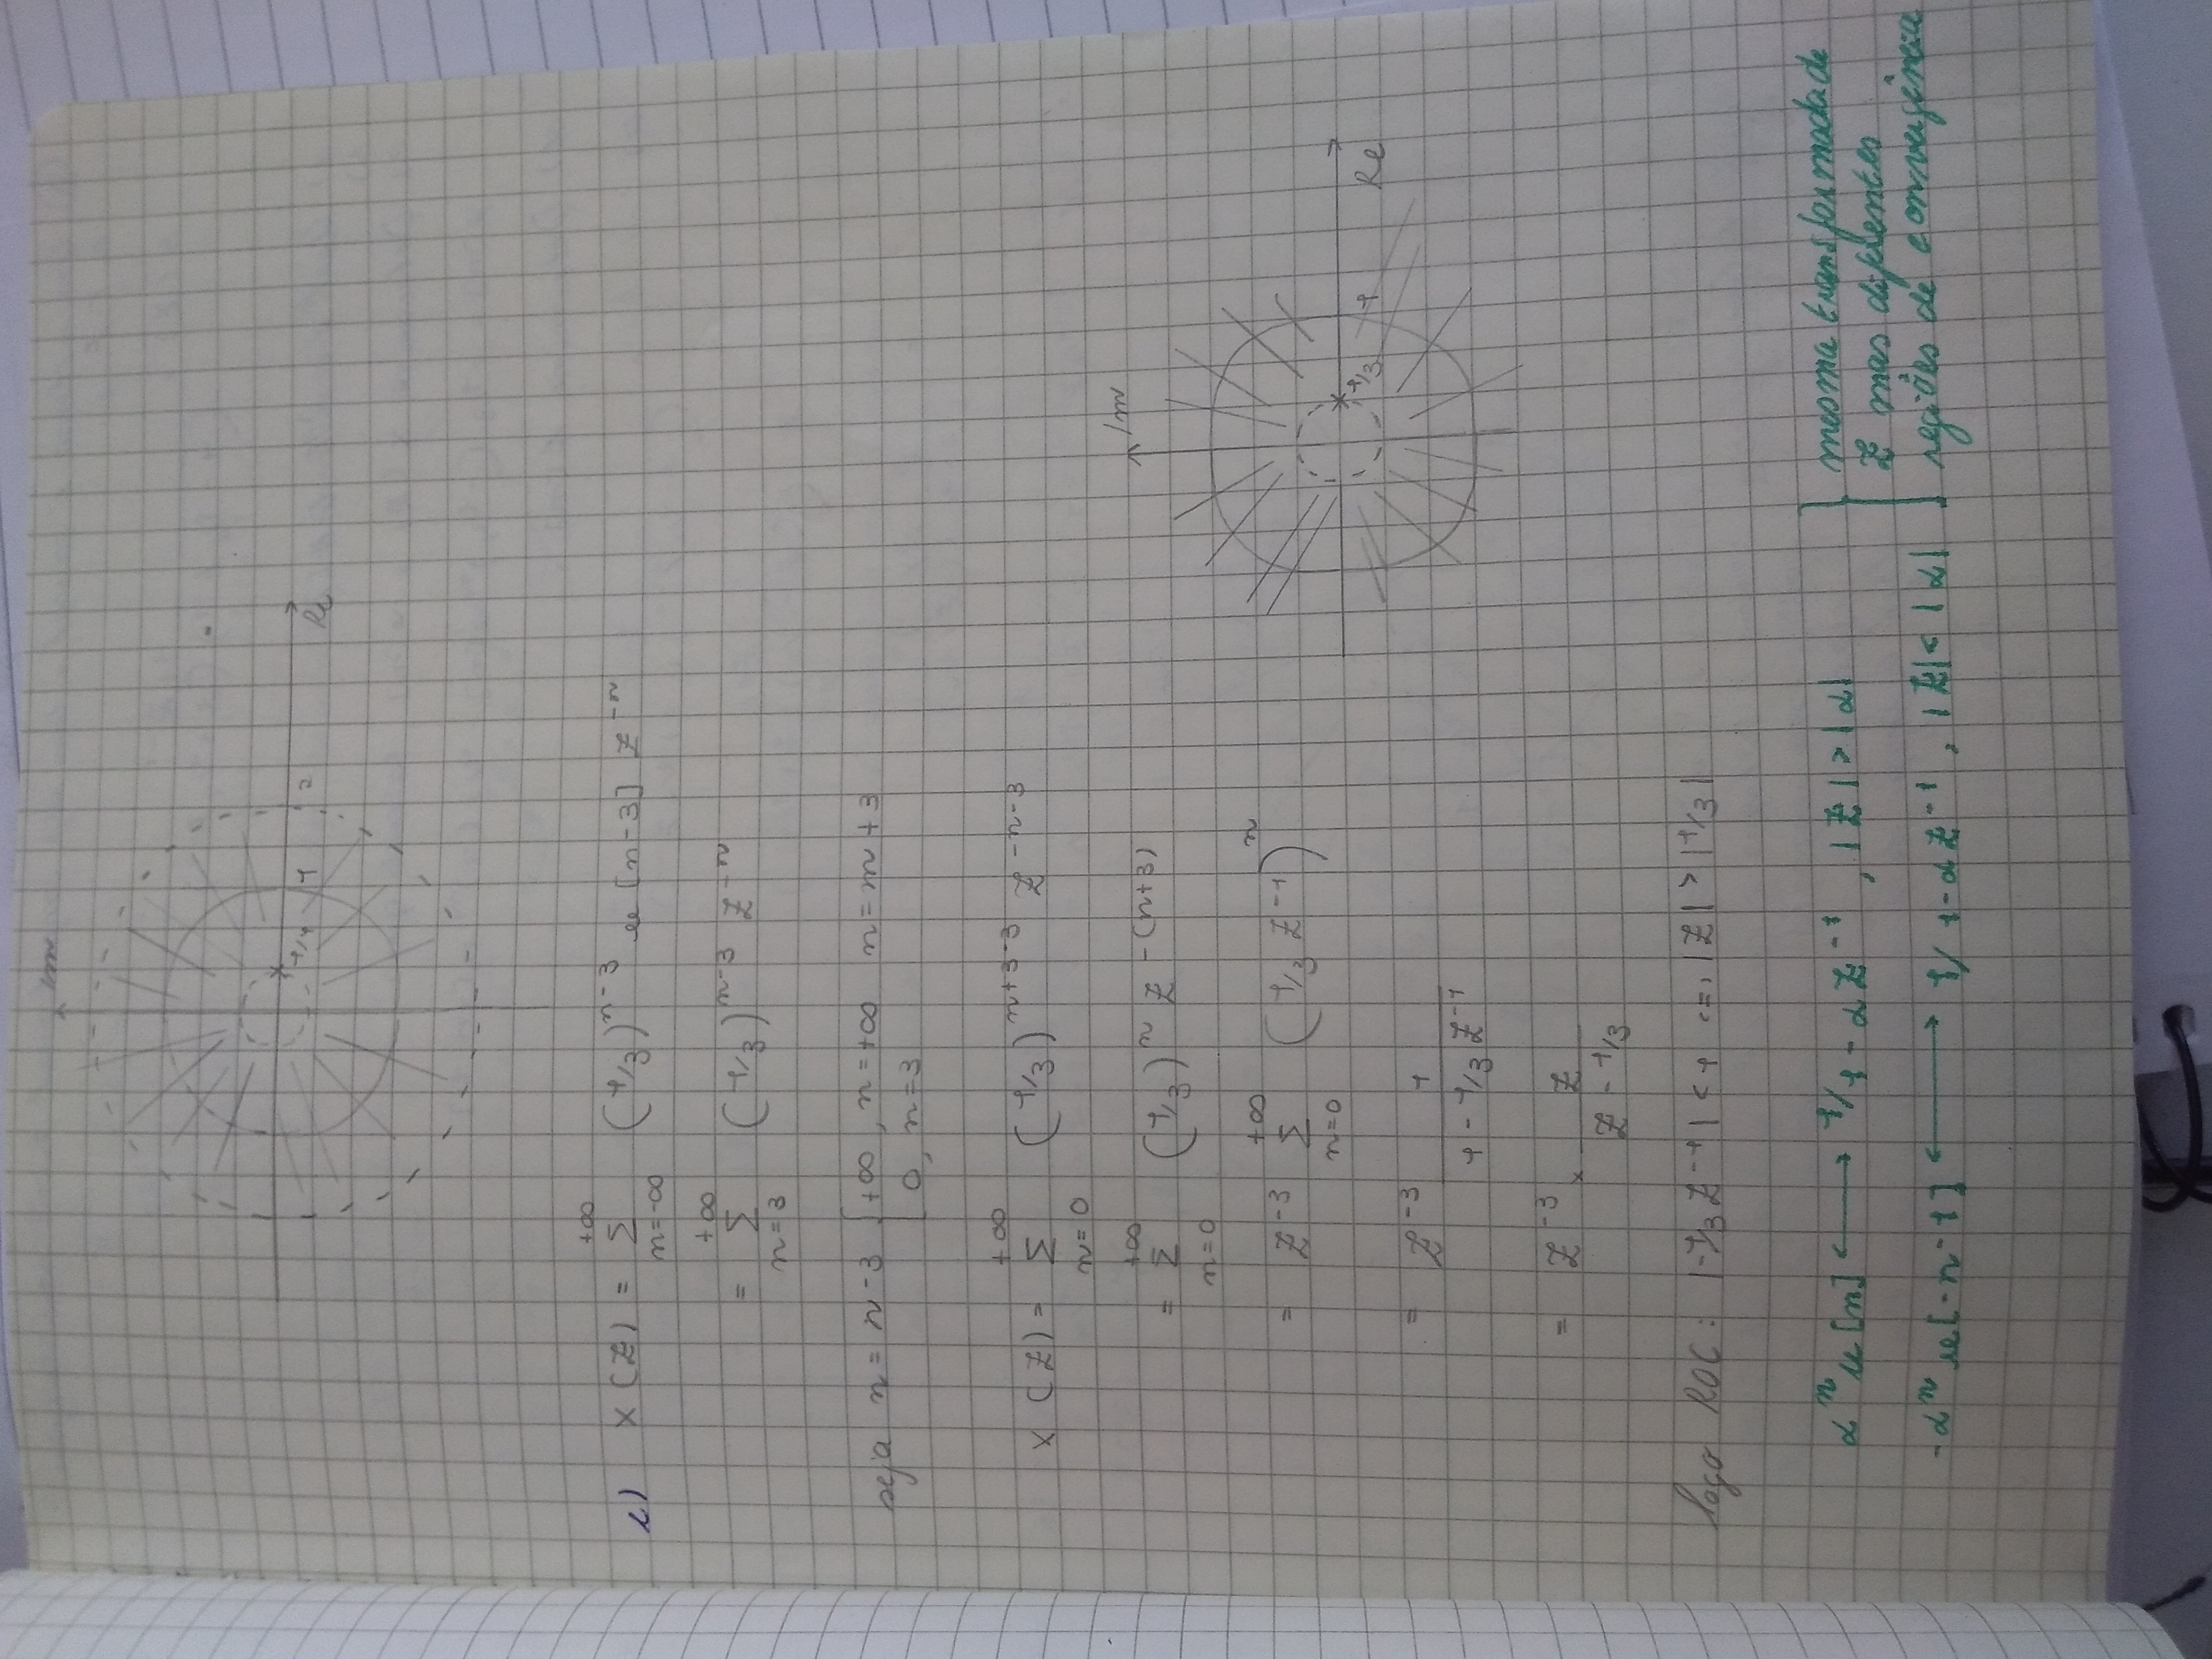 Im
1/4 1 2
Re
c) X(Z) = +∞ Σ n=-∞ (1/3)^{n-3} u[n-3] Z^{-n}
= +∞ Σ n=3 (1/3)^{n-3} Z^{-n}
seja n = n-3 { +∞, n=+∞ n=m+3
0, n=3
X(Z) = +∞ Σ n=0 (1/3)^{n+3-3} Z^{-n-3}
= +∞ Σ n=0 (1/3)^{n} Z^{-(n+3)}
= Z^{-3} +∞ Σ n=0 (1/3 Z^{-1})^{n}
= Z^{-3} 1 / (1 - 1/3 Z^{-1})
= Z^{-3} × Z / (Z - 1/3)
Im
1/3 1
Re
logo ROC: |-1/3 Z^{-1}| < 1 <=> |Z| > |1/3|
α^{n} u[n] ⟷ 1/1 - α Z^{-1}, |Z| > |α|
-α^{n} u[-n-1] ⟷ 1/1-α Z^{-1}, |Z| < |α|
} mesma transformada de
Z mas diferentes
regiões de convergência